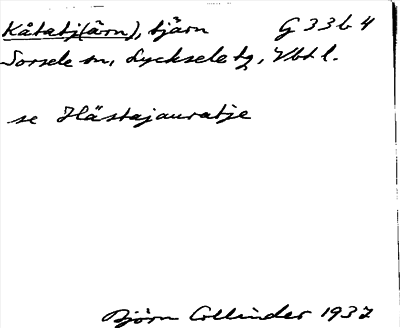 Kåtatj(ärn), tjärn G 33 b 4
Sorsele sn, Lycksele tg, Vbtl.
se Hästajauratje
Björn Collinder 1937